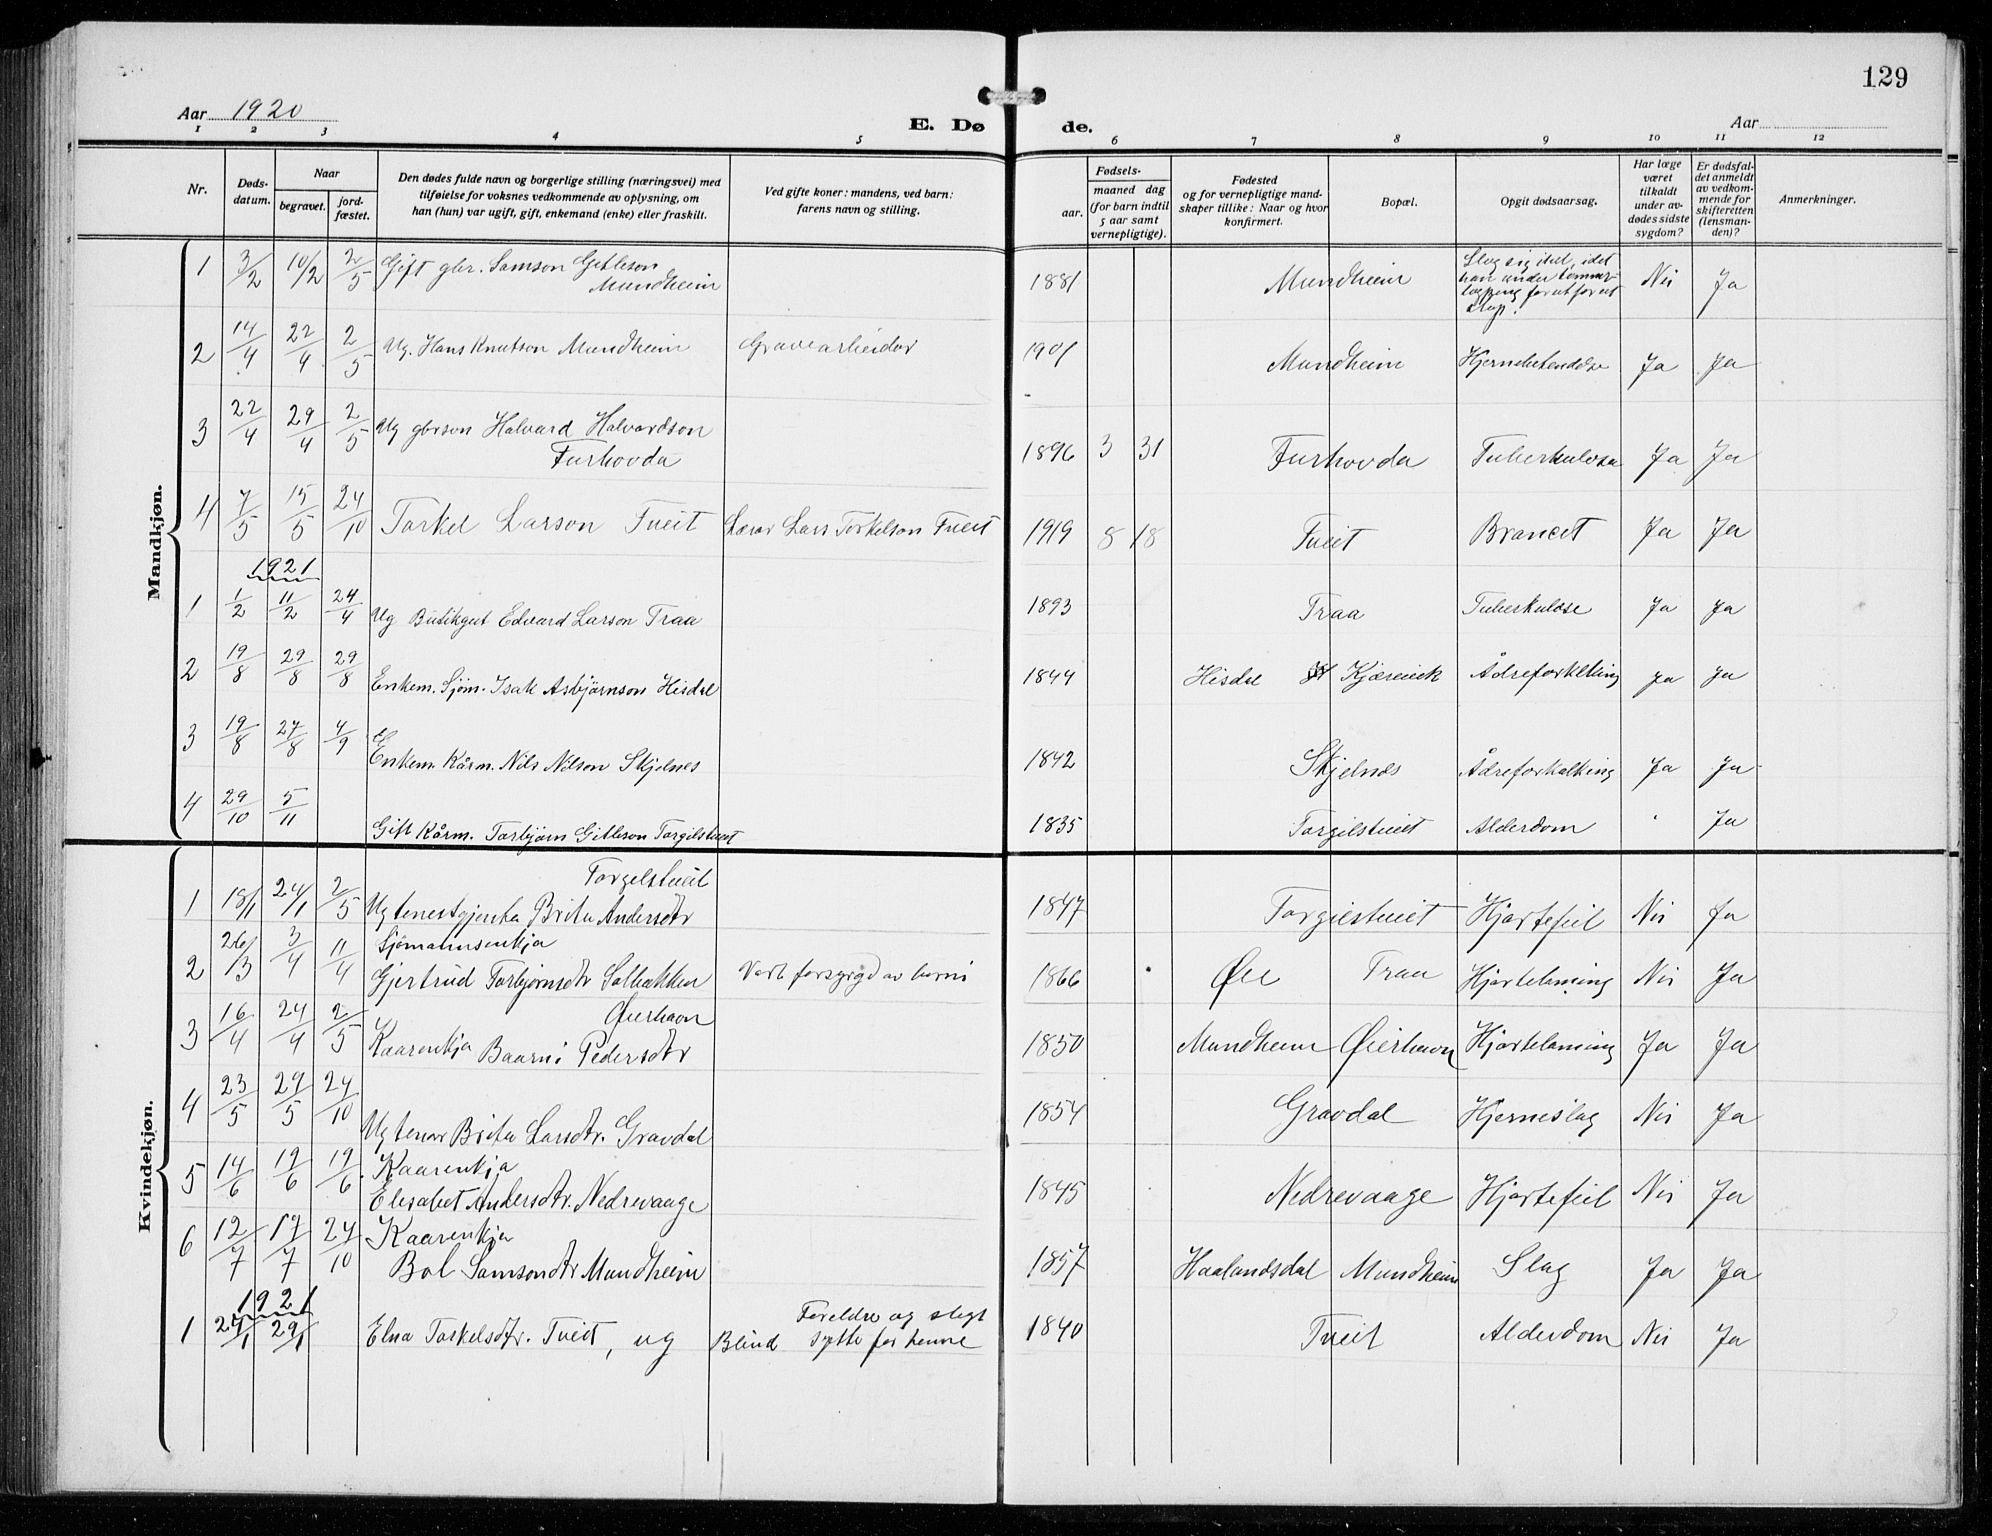 129
Aar 1920
E. Døde.
Aar
1 2 3 4 5 6 7 8 9 10 11 12
Nr.
Døds-datum.
Naar
begravet.
jord-fæstet.
Den dødes fulde navn og borgerlige stilling (næringsvei) med tilføielse for voksnes vedkommende av oplysning, om han (hun) var ugift, gift, enkemand (enke) eller fraskilt.
Ved gifte koner: mandens, ved barn: farens navn og stilling.
Fødsels-
aar.
maaned dag (for barn indtil 5 aar samt vernepligtige).
Fødested og for vernepligtige mandskaper tillike: Naar og hvor konfirmert.
Bopæl.
Opgit dødsaarsag.
Har læge været tilkaldt under avdødes sidste sygdom?
Er dødsfaldet anmeldt av vedkommende for skifteretten (lensmanden)?
Anmerkninger.
Mandkjøn.
1 3/2 10/2 2/5 Gift gbr. Samson Gitleson Mundheim 1881 Mundheim Slog sig ihel, idet han under tømmerløpning for ut for eit stup. Nei Ja
2 14/4 22/4 2/5 Ug. Hans Knutson Mundheim Gravearbeider 1901 Mundheim Hjernebetendelse Ja Ja
3 22/4 29/4 2/5 Ug gbrson Halvard Halvardson Furhovda 1896 3 31 Furhovda Tuberkulose Ja Ja
4 7/5 15/5 24/10 Torkel Larson Tveit Lærar Lars Torkelson Tveit 1919 8 18 Tveit Broncet Ja Ja
1921
1 1/2 11/2 24/4 Ug Butikgut Edvard Larson Traa 1893 Traa Tuberkulose Ja Ja
2 19/8 29/8 29/8 Enkem. Sjøm. Isak Asbjørnson Hisdal 1844 Hisdal Kjærevik Ådreforkalking Ja Ja
3 19/8 27/8 4/9 Enkem. Kårm. Nils Nilson Skjelnes 1842 Skjelnes Ådreforkalking Ja Ja
4 29/10 5/11 Gift Kårm. Torbjørn Gitleson Torgilstveit 1835 Torgilstveit Alderdom Ja
Kvindekjøn.
1 18/1 24/1 2/5 Ug tenestgjenta Brita Andersdtr Torgelstveit 1847 Torgilstveit Hjartefeil Nei Ja
2 26/3 3/4 11/4 Sjømannsenkja Gjertrud Torbjørnsdtr Solbakken Vart forsyrgd av borni 1866 Øie Traa Hjartelaming Nei Ja
3 16/4 24/4 2/5 Kaarenkja Baarni Pedersdtr Øierhavn 1850 Mundheim Øierhavn Hjartelaming Ja Ja
4 23/5 29/5 24/10 Ug tenar Brita Larsdtr. Gravdal 1854 Gravdal Hjerneslag Nei Ja
5 14/6 19/6 19/6 Kaarenkja Elisabet Andersdtr. Nedrevaage 1845 Nedrevaage Hjartefeil Nei Ja
6 12/7 17/7 24/10 Kaarenkja Bol Samsondtr Mundheim 1857 Haalandsdal Mundheim Slag Ja Ja
1921
1 24/1 29/1 Elna Torkelsdtr. Tveit, ug Blind Foreldre og slegt sytte for henne 1840 Tveit Alderdom Nei Ja